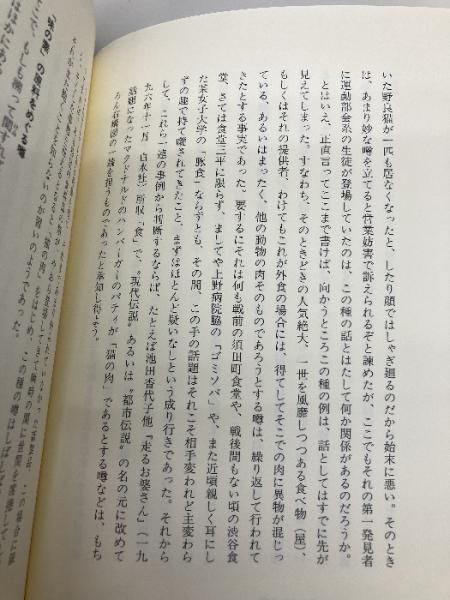 いた野良猫が一匹も居なくなったと、したり顔ではしゃぎ廻るのだから始末に悪い。そのとき
は、あまり妙な噂を立てると営業妨害で訴えられるぞと諫めたが、ここでもそれの第一発見者
に運動部会系の生徒が登場していたのは、この種の話とはたして何か関係があるのだろうか。
とはいえ、正直言ってここまで書けば、向かうところこの種の例は、話としてはすでに先が
見えてしまった。すなわち、そのときどきの人気絶大、一世を風靡しつつある食べ物（屋）、
もしくはそれの提供者、わけてもこれが外食の場合には、得てしてそこでの肉に異物が混じっ
ている、あるいはまったく、他の動物の肉そのものであろうとする噂は、繰り返して行われて
きたとする事実であった。要するにそれは何も戦前の須田町食堂や、戦後間もない頃の渋谷食
堂、さては食堂三平に限らず、ましてや上野病院脇の「ゴミソバ」や、また近頃親しく耳にし
た某女子大学の「豚食」ならずとも、その間、この手の話題はそれこそ相手変われど主変わら
ずの趣で持て囃されてきたこと、まずはほとんど疑いなしという成り行きであった。それから
して、これら一連の事例から判断するならば、たとえば池田香代子他『走るお婆さん』（一九
九六年十一月　白水社）所収「食」で、〝現代伝説〟あるいは〝都市伝説〟の名の元に改めて
話題になったマクドナルドのハンバーガーのパティが「猫の肉」であるとする噂などは、もち
ろん右構図の一端を担うものであったと承知し得よう。
「猫の肉」の原料をめぐる噂